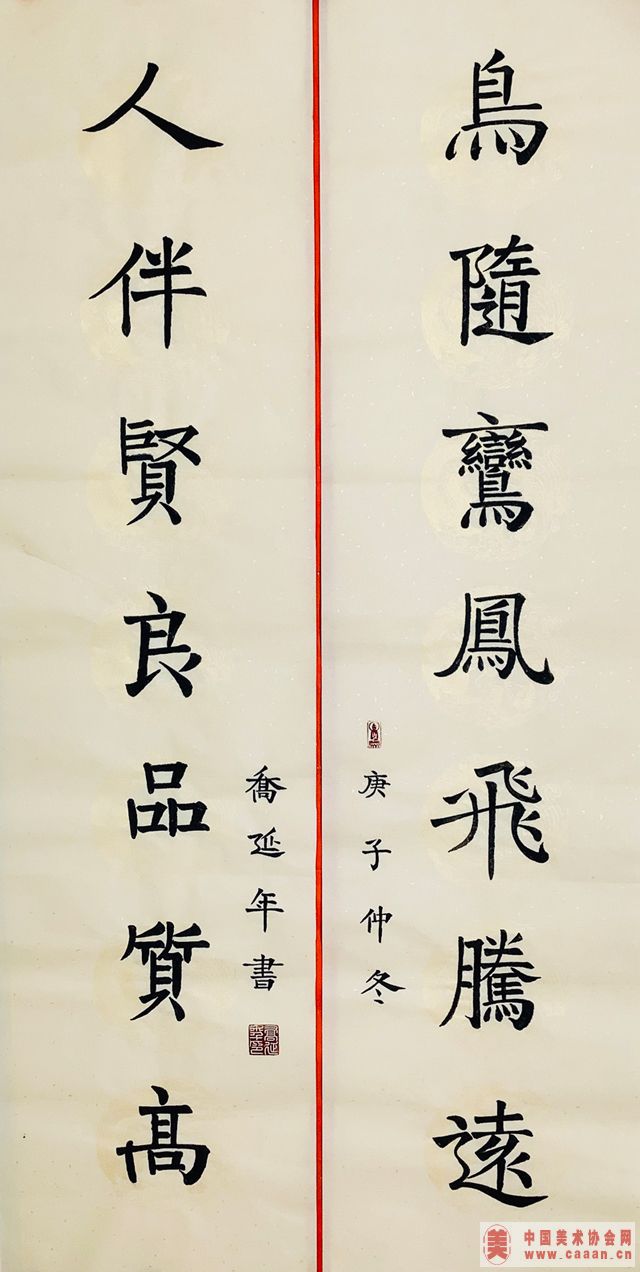 鳥隨鸞鳳飛騰遠
庚子仲冬
人伴賢良品質高
喬延年書
中国美术协会网
www.caaan.cn